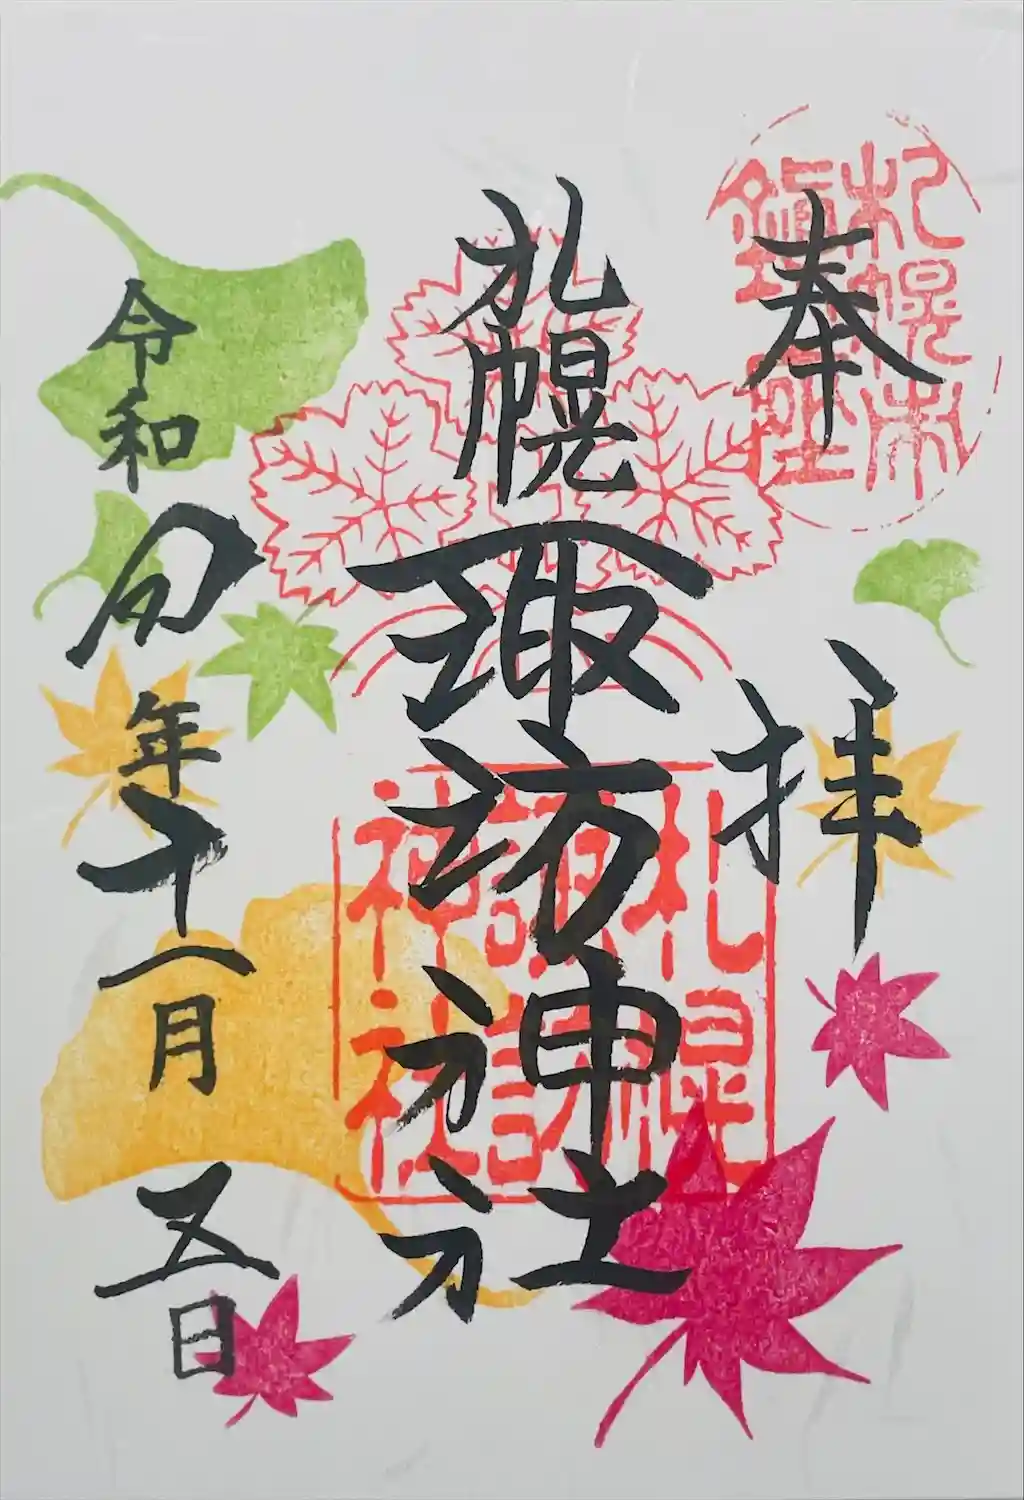 奉拝
札幌市
鎮座
札幌諏訪神社
札幌
諏訪
神社
令和四年十一月五日